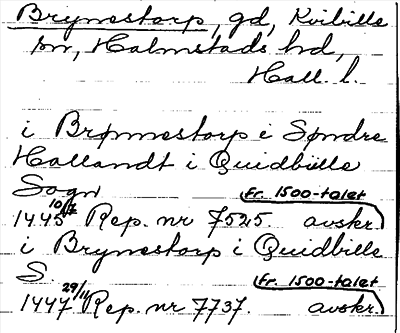 Brynestorp, gd, Kvibille
sn, Halmstads hd,
Hall. l.
i Brønnestorp i Søndre
Hallandt i Quidbille
Sogn
1445 10/7 Rep. nr 7525. avskr. fr. 1500-talet
i Brynestorp i Quidbille
S.
1447 29/11 Rep. nr 7737. avskr. fr. 1500-talet